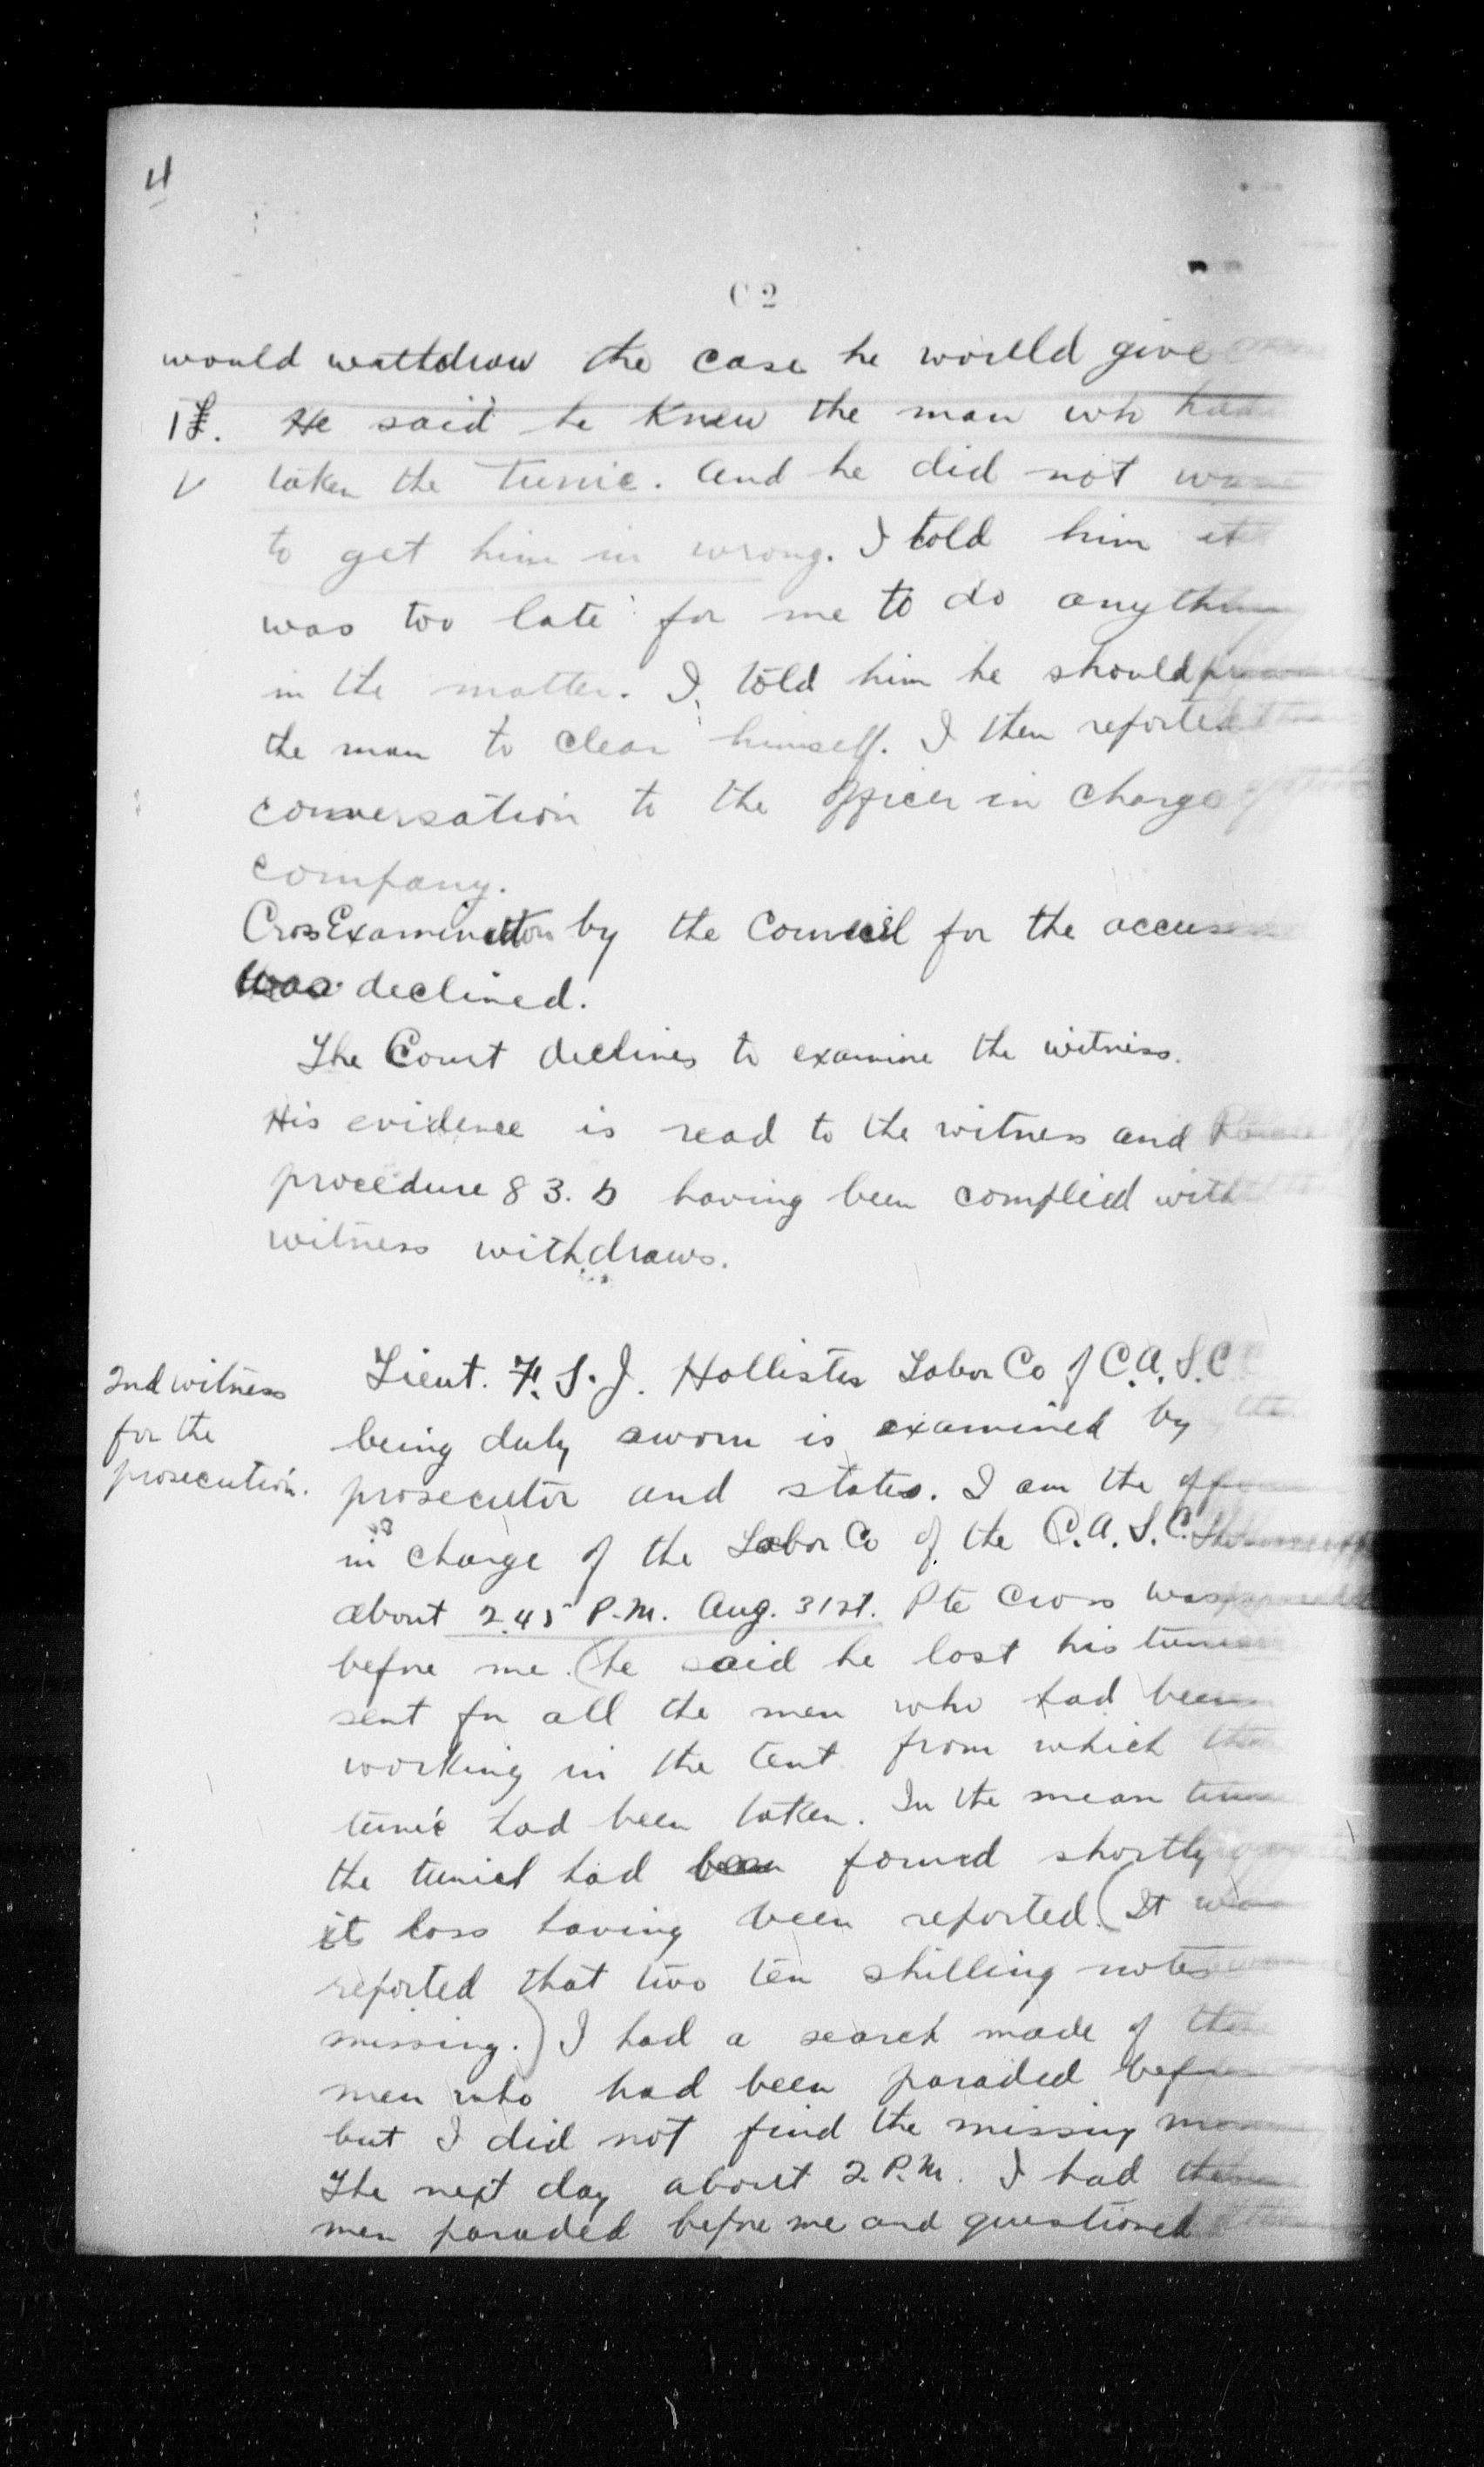 4
C 2
would withdraw the case he would give
1£. He said he knew the man wh had
taken the tunic. And he did not
to get him in wrong. I told him it
was too late for me to do anything
in the matter. I told him he should
the man to clear himself. I then reported
conversation to the officer in charge of
company.
Cross Examination by the Council for the accused
was declined.
The Court declines to examine the witness.
His evidence is read to the witness and
procedure 83. b having been complied with
witness withdraws.
2nd witness
for the
prosecution.
Lieut. F. S. J. Hollister Labor Co of C.A.S.C.
being duly sworn is examined by the
prosecutor and states. I am the
in charge of the Labor Co of the C.A.S.C.
about 2.45 P.M. Aug. 31st. Pte Cross was
before me. (he said he lost his tunic
sent for all the men who had been
working in the tent from which the
tunic had been taken. In the mean time
the tunic had been found shortly
its loss having been reported. (It was
reported that two ten shilling notes
missing.) I had a search made of the
men who had been paraded before
but I did not find the missing
The next day about 2. P.M. I had
men paraded before me and questioned